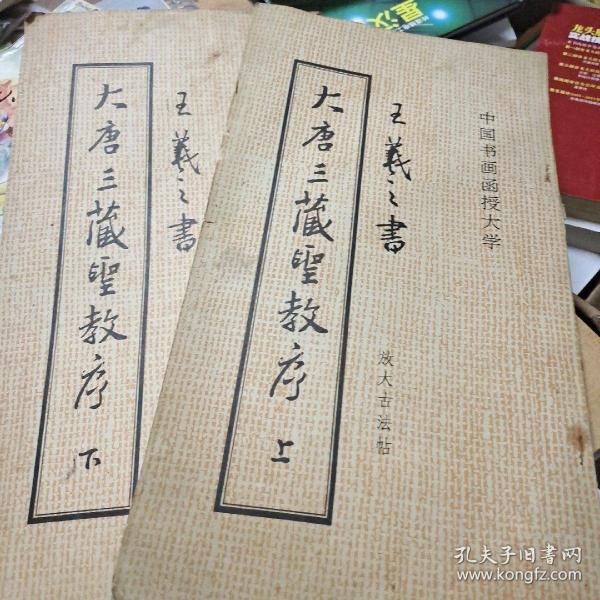 中国书画函授大学
王羲之書
大唐三藏聖教序 上
放大古法帖
王羲之書
大唐三藏聖教序 下
星汉
孔夫子旧书网
www.kongfz.com